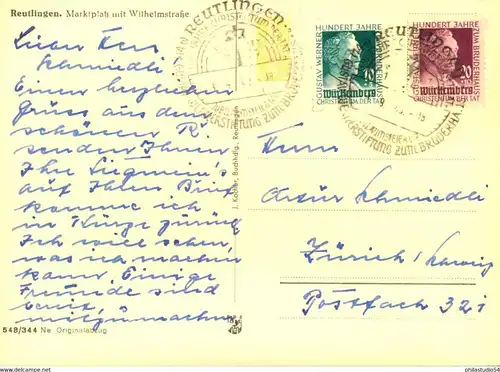 Reutlingen. Marktplatz mit Wilhelmstraße
Lieber Herr
Schmiedli!
Einen herzlichen
Gruss aus dem
schönen R.
senden Ihnen
Ihre
auf Ihren Brief
komme ich
in Kürze zurück
Ich will sehen,
was ich machen
kann. Einige
Freunde sind
bereit,
mitzumachen
548/344 Ne Originalabzug
J. Kocher, Buchhdlg., Reutlingen
REUTLINGEN
HUNDERT JAHRE
GUSTAV WERNER
STIFTUNG ZUM BRUDERHAUS
10
Württemberg
CHRISTENTUM DER TAT
REUTLINGEN
HUNDERT JAHRE
GUSTAV WERNER
STIFTUNG ZUM BRUDERHAUS
20
Württemberg
CHRISTENTUM DER TAT
Herrn
Artur Schmiedli
Zürich / Schweiz
Postfach 321
philastudio54
delcampe.net